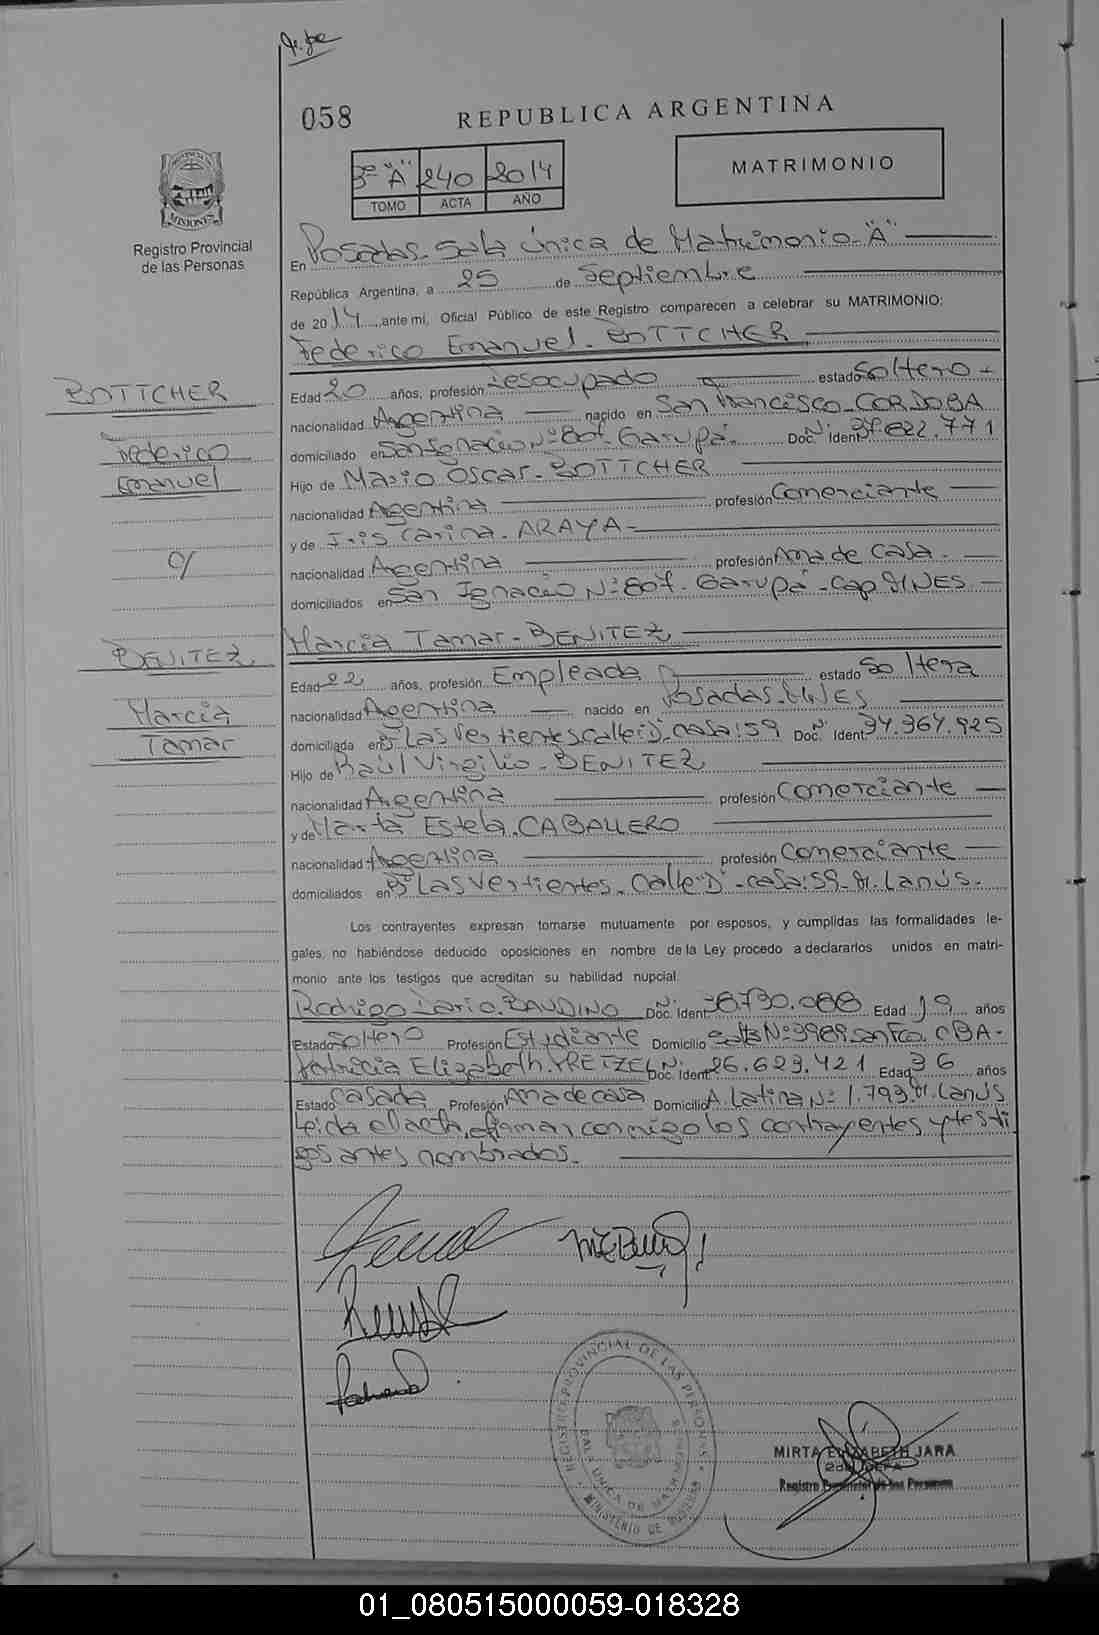 058
REPUBLICA ARGENTINA
3º "A" 240 2014
TOMO ACTA AÑO
MATRIMONIO
PROVINCIA DE
MISIONES
Registro Provincial
de las Personas
En Posadas - Sala Única de Matrimonio - "A"
República Argentina, a 25 de Septiembre
de 2014, ante mi, Oficial Público de este Registro comparecen a celebrar su MATRIMONIO:
Federico Emanuel - BOTTCHER
BOTTCHER
Federico
Emanuel
c/
BENITEZ
Marcia
Tamar
Edad 20 años, profesión Desocupado estado Soltero -
nacionalidad Argentina nacido en San Francisco - CORDOBA
domiciliado en San Ignacio Nº 807 - Garupá - Doc. Nº Ident 37.822.771
Hijo de Mario Oscar - BOTTCHER
nacionalidad Argentina profesión Comerciante
y de Iris Carina - ARAYA -
nacionalidad Argentina profesión Ama de Casa -
domiciliados en San Ignacio Nº 807 - Garupá - Cap MNES
Marcia Tamar - BENITEZ
Edad 22 años, profesión Empleada estado Soltera
nacionalidad Argentina nacido en Posadas - MNES
domiciliada en Bº Las Vertientes calle: D - casa: 59 Doc. Nº Ident 34.367.925
Hijo de Raúl Virgilio - BENITEZ
nacionalidad Argentina profesión Comerciante
y de Marta Estela - CABALLERO
nacionalidad Argentina profesión Comerciante
domiciliados en Bº Las Vertientes - Calle "D" - casa: 59 - Lanús -
Los contrayentes expresan tomarse mutuamente por esposos, y cumplidas las formalidades le-
gales, no habiéndose deducido oposiciones en nombre de la Ley procedo a declararlos unidos en matri-
monio ante los testigos que acreditan su habilidad nupcial.
Rodrigo Dario - BAUDINO Doc. Nº Ident 38.730.088 Edad 19 años
Estado Soltero Profesión Estudiante Domicilio Salta Nº 3989 San Fco. CBA -
Patricia Elizabeth - PRETZEL Doc. Nº Ident 26.623.421 Edad 36 años
Estado Casada Profesión Ama de casa Domicilio A. Latina Nº 1.793 Lanús
Leída el acta, firman conmigo los contrayentes y testi
gos antes nombrados -
REGISTRO PROVINCIAL DE LAS PERSONAS
SALA UNICA DE MATRIMONIOS
MINISTERIO DE
MIRTA ELIZABETH JARA
Registro Provincial de las Personas
01_080515000059-018328